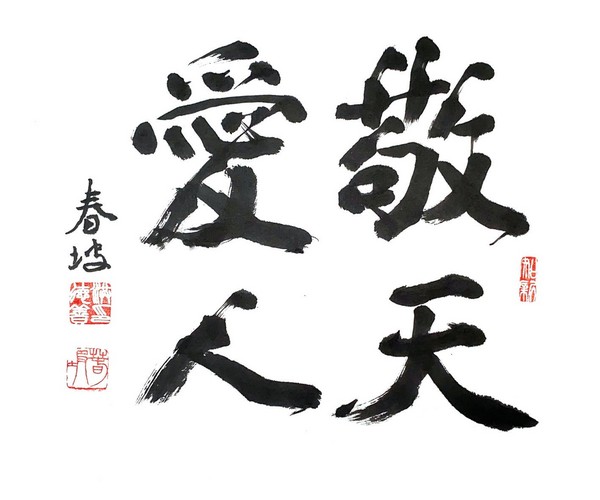 敬天
愛人
春坡